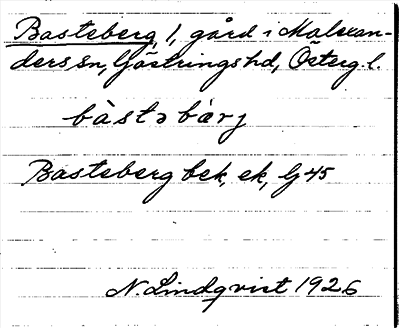 Basteberg, 1, gård i Malexan-
ders sn, Göstrings hd, Östergl.
bàstəbàrj
Basteberg bek, ek, G 45
N. Lindqvist 1926